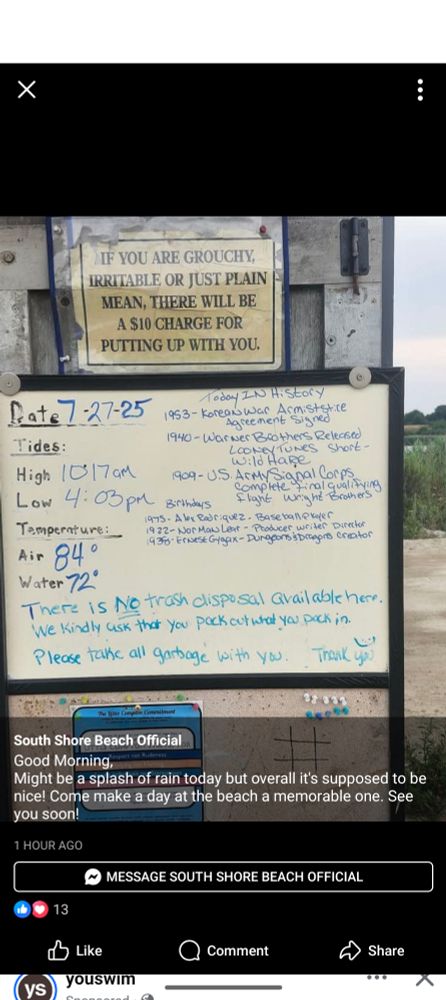 IF YOU ARE GROUCHY,
IRRITABLE OR JUST PLAIN
MEAN, THERE WILL BE
A $10 CHARGE FOR
PUTTING UP WITH YOU.
Date 7-27-25
Tides:
High 10:17am
Low 4:03pm
Temperature:
Air 84°
Water 72°
Today IN History
1953- Korean War Armistice
Agreement Signed
1940- Warner Brothers Released
LOONEY TUNES Short-
Wild Hare
1909- U.S. Army Signal Corps
complete final qualifying
flight Wright Brothers
Birthdays
1975- Alex Rodriquez- Baseball Player
1922- Norman Lear- Producer Writer Director
1938- Ernest Gygax- Dungeons & Dragons Creator
There is NO trash disposal available here.
We kindly ask that you pack out what you pack in.
Please take all garbage with you. Thank you
South Shore Beach Official
Good Morning,
Might be a splash of rain today but overall it's supposed to be
nice! Come make a day at the beach a memorable one. See
you soon!
1 HOUR AGO
MESSAGE SOUTH SHORE BEACH OFFICIAL
13
Like
Comment
Share
ys
youswim
Sponsored